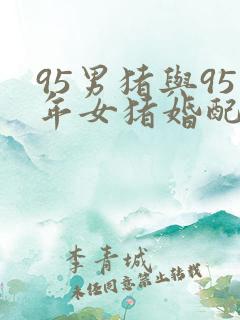 95男猪與95
年女猪婚配
李青城
未任同意禁止转载